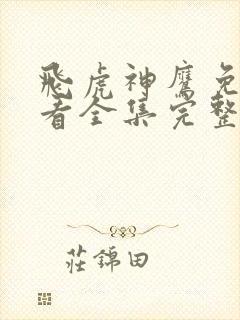 飛虎神鷹免
看全集完整
莊錦田